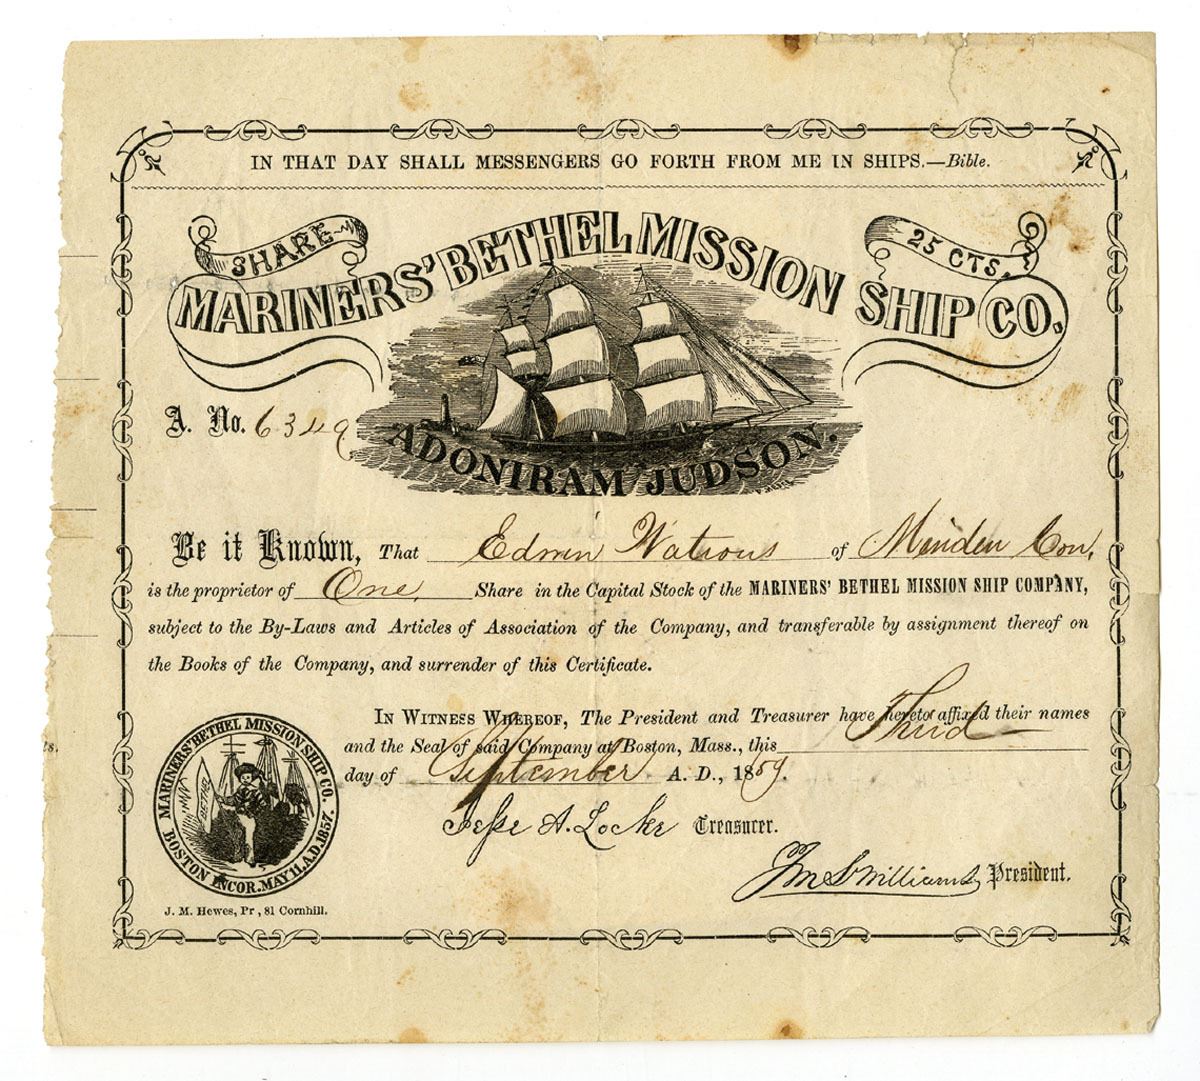 IN THAT DAY SHALL MESSENGERS GO FORTH FROM ME IN SHIPS.—Bible.
SHARE
25 CTS.
MARINERS' BETHEL MISSION SHIP CO.
A. No. 6349
ADONIRAM JUDSON.
Be it Known, That Edwin Watrous of Meriden Con,
is the proprietor of One Share in the Capital Stock of the MARINERS' BETHEL MISSION SHIP COMPANY,
subject to the By-Laws and Articles of Association of the Company, and transferable by assignment thereof on
the Books of the Company, and surrender of this Certificate.
In Witness Whereof, The President and Treasurer have hereto affixed their names
and the Seal of said Company at Boston, Mass., this Third
day of September A. D., 1859.
Jesse A. Locke Treasurer.
Jm S Williams President.
MARINERS' BETHEL MISSION SHIP CO.
BOSTON INCOR. MAY 11, A.D. 1857.
BETHEL
J. M. Hewes, Pr, 81 Cornhill.
ts.